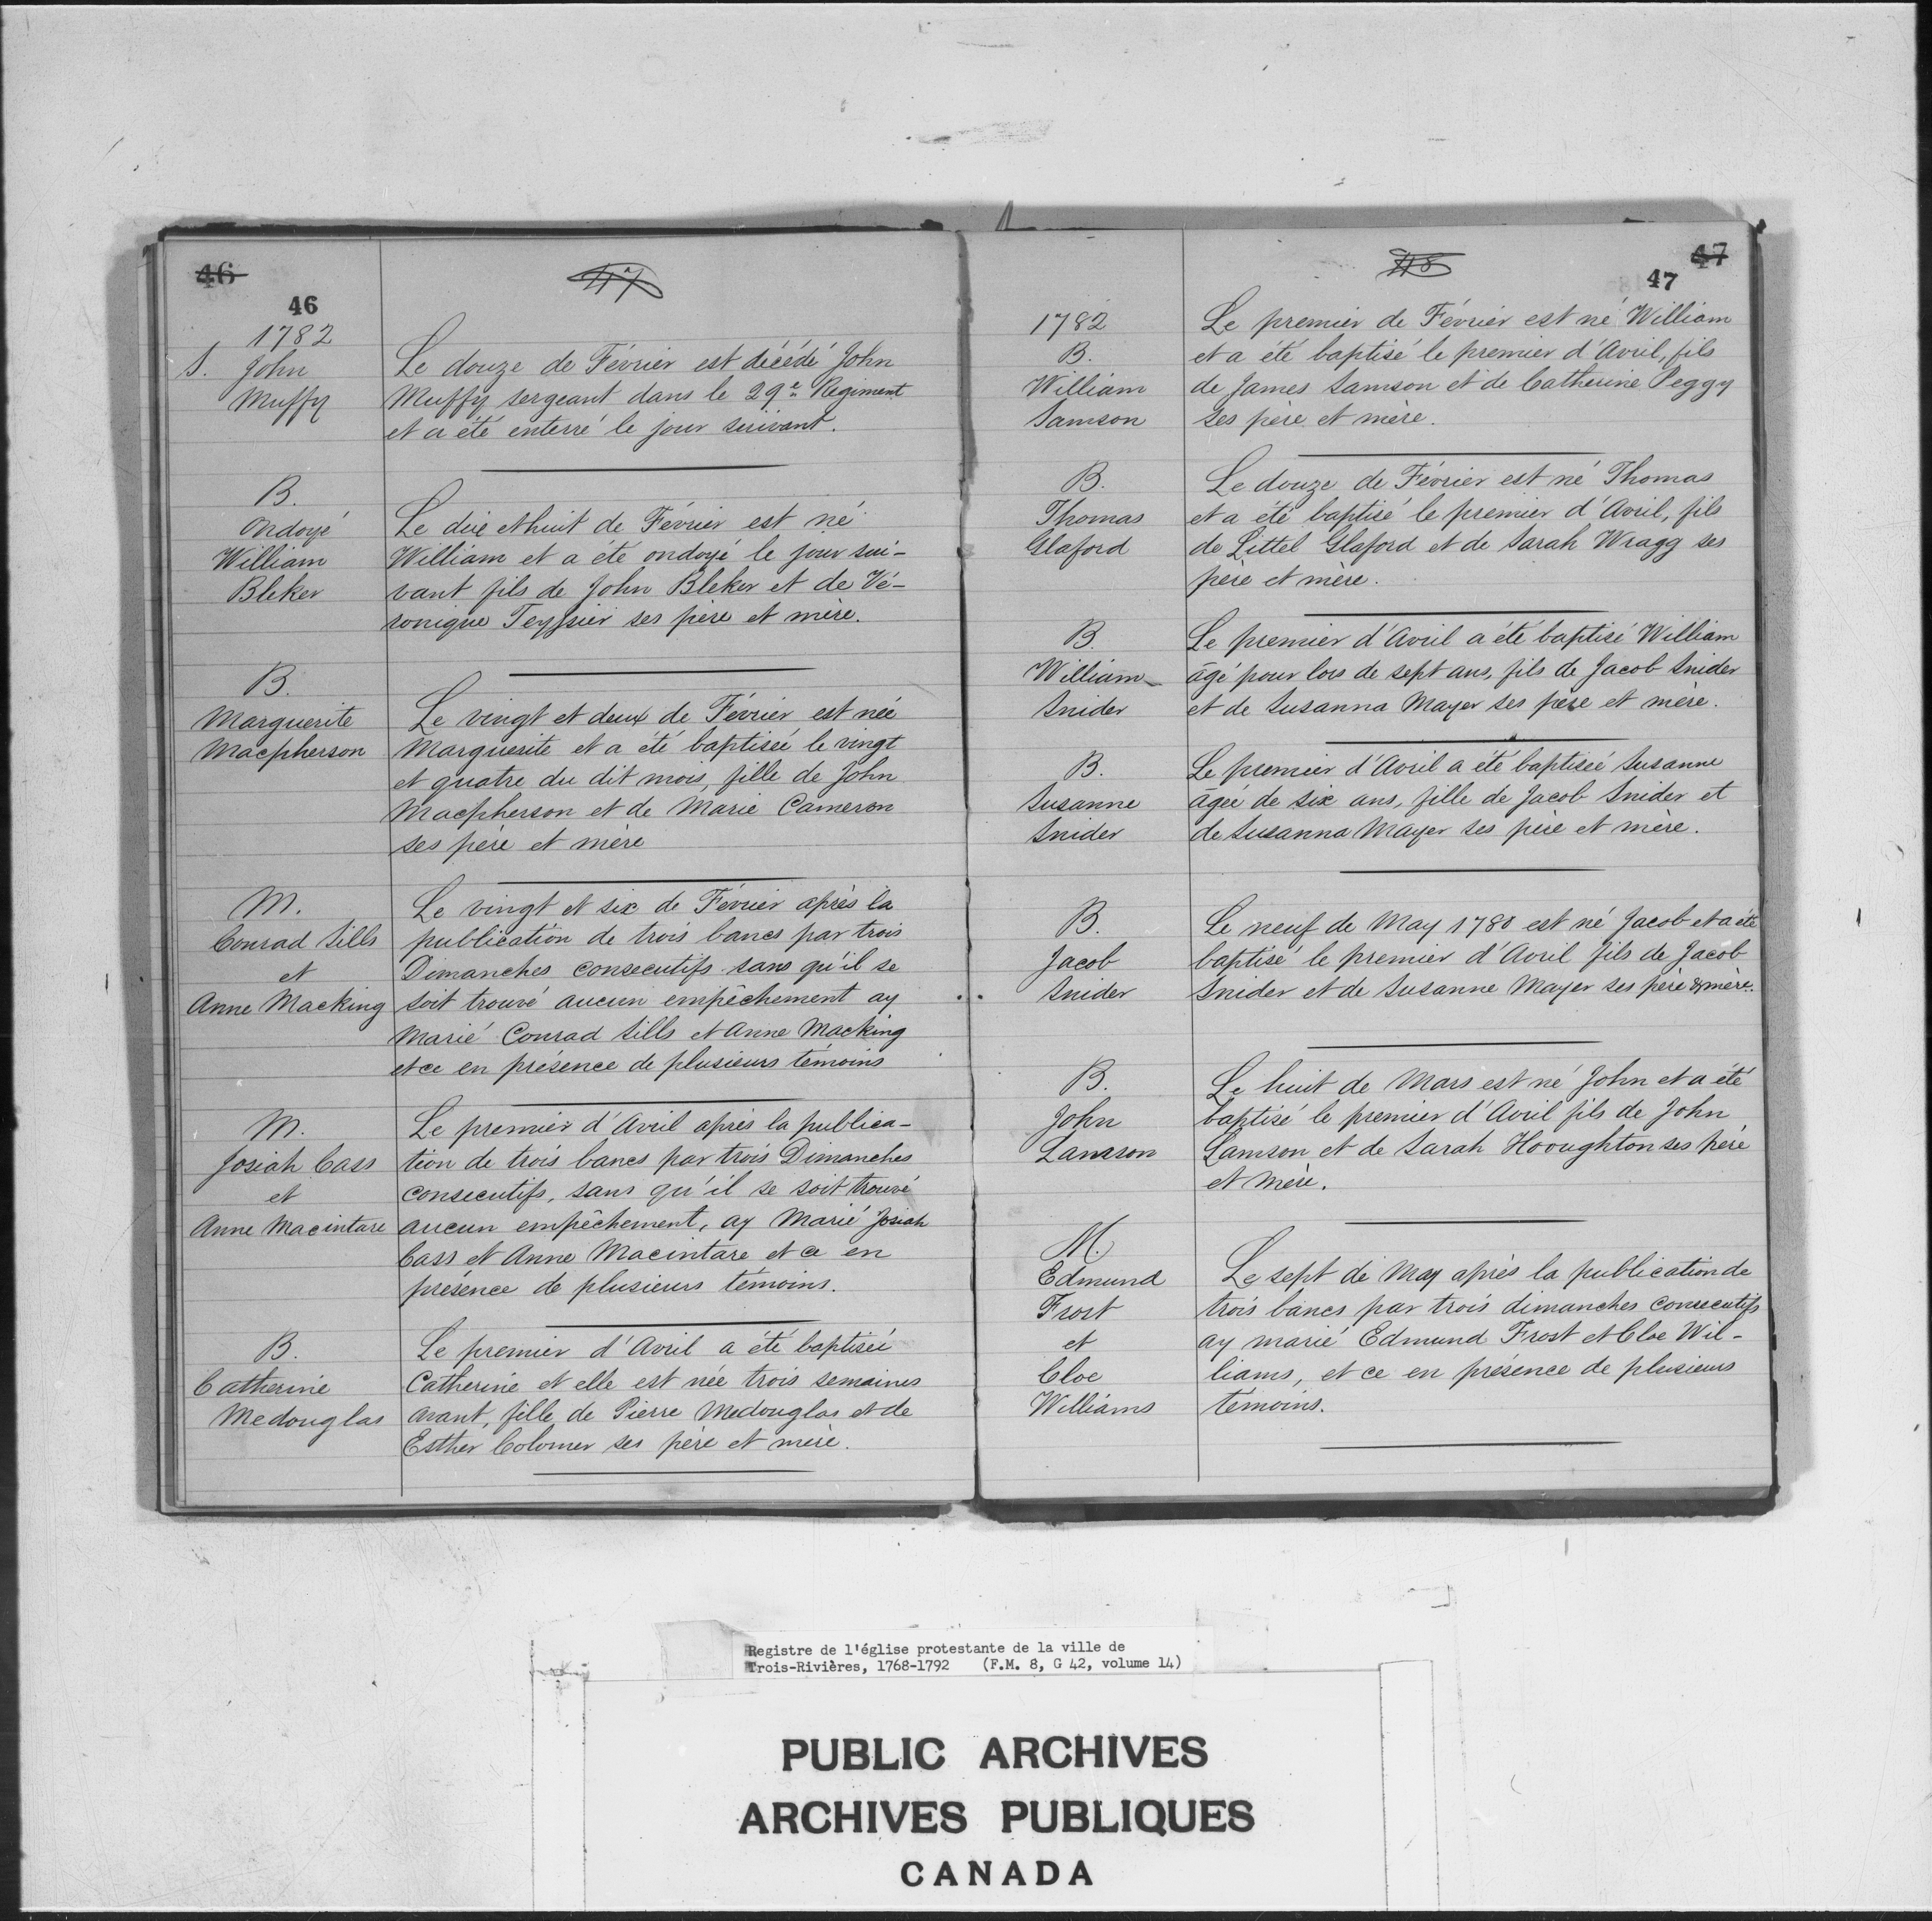 46
46
47
1782
S. John
Muffy
Le douze de Février est décédé John
Muffy sergeant dans le 29e Regiment
et a été enterré le jour suivant.
B.
Ondoyé
William
Bleker
Le dix et huit de Février est né
William et a été ondoyé le jour sui-
vant fils de John Bleker et de Vé-
ronique Teyssier ses père et mère.
B.
Marguerite
Macpherson
Le vingt et deux de Février est née
Marguerite et a été baptisée le vingt
et quatre du dit mois, fille de John
Macpherson et de Marie Cameron
ses père et mère
M.
Conrad Sills
et
Anne Macking
Le vingt et six de Février après la
publication de trois bancs par trois
Dimanches consecutifs sans qu'il se
soit trouvé aucun empêchement ay
Marié Conrad Sills et Anne Macking
et ce en présence de plusieurs témoins
M.
Josiah Cass
et
Anne Macintare
Le premier d'Avril après la publica-
tion de trois bancs par trois Dimanches
consecutifs, sans qu'il se soit trouvé
aucun empêchement, ay Marié Josiah
Cass et Anne Macintare et ce en
présence de plusieurs témoins.
B.
Catherine
Medouglas
Le premier d'Avril a été baptisée
Catherine et elle est née trois semaines
avant, fille de Pierre Medouglas et de
Esther Colomer ses père et mère.
48
47
47
1782
B.
William
Samson
Le premier de Février est né William
et a été baptisé le premier d'Avril, fils
de James Samson et de Catherine Peggy
ses pere et mère.
B.
Thomas
Glaford
Le douze de Février est né Thomas
et a été baptisé le premier d'Avril, fils
de Littel Glaford et de Sarah Wragg ses
père et mère.
B.
William
Snider
Le premier d'Avril a été baptisé William
âgé pour lors de sept ans, fils de Jacob Snider
et de Susanna Mayer ses père et mère.
B.
Susanne
Snider
Le premier d'Avril a été baptisée Susanne
âgée de six ans, fille de Jacob Snider et
de Susanna Mayer ses père et mère.
B.
Jacob
Snider
Le neuf de May 1780 est né Jacob et a été
baptisé le premier d'Avril fils de Jacob
Snider et de Susanne Mayer ses père & mère.
B.
John
Lamson
Le huit de Mars est né John et a été
baptisé le premier d'Avril fils de John
Lamson et de Sarah Hooughton ses père
et Mère.
M.
Edmund
Frost
et
Cloe
Williams
Le sept de May après la publication de
trois bancs par trois dimanches consecutifs
ay marié Edmund Frost et Cloe Wil-
liams, et ce en présence de plusieurs
témoins.
Registre de l'église protestante de la ville de
Trois-Rivières, 1768-1792 (F.M. 8, G 42, volume 14)
PUBLIC ARCHIVES
ARCHIVES PUBLIQUES
CANADA